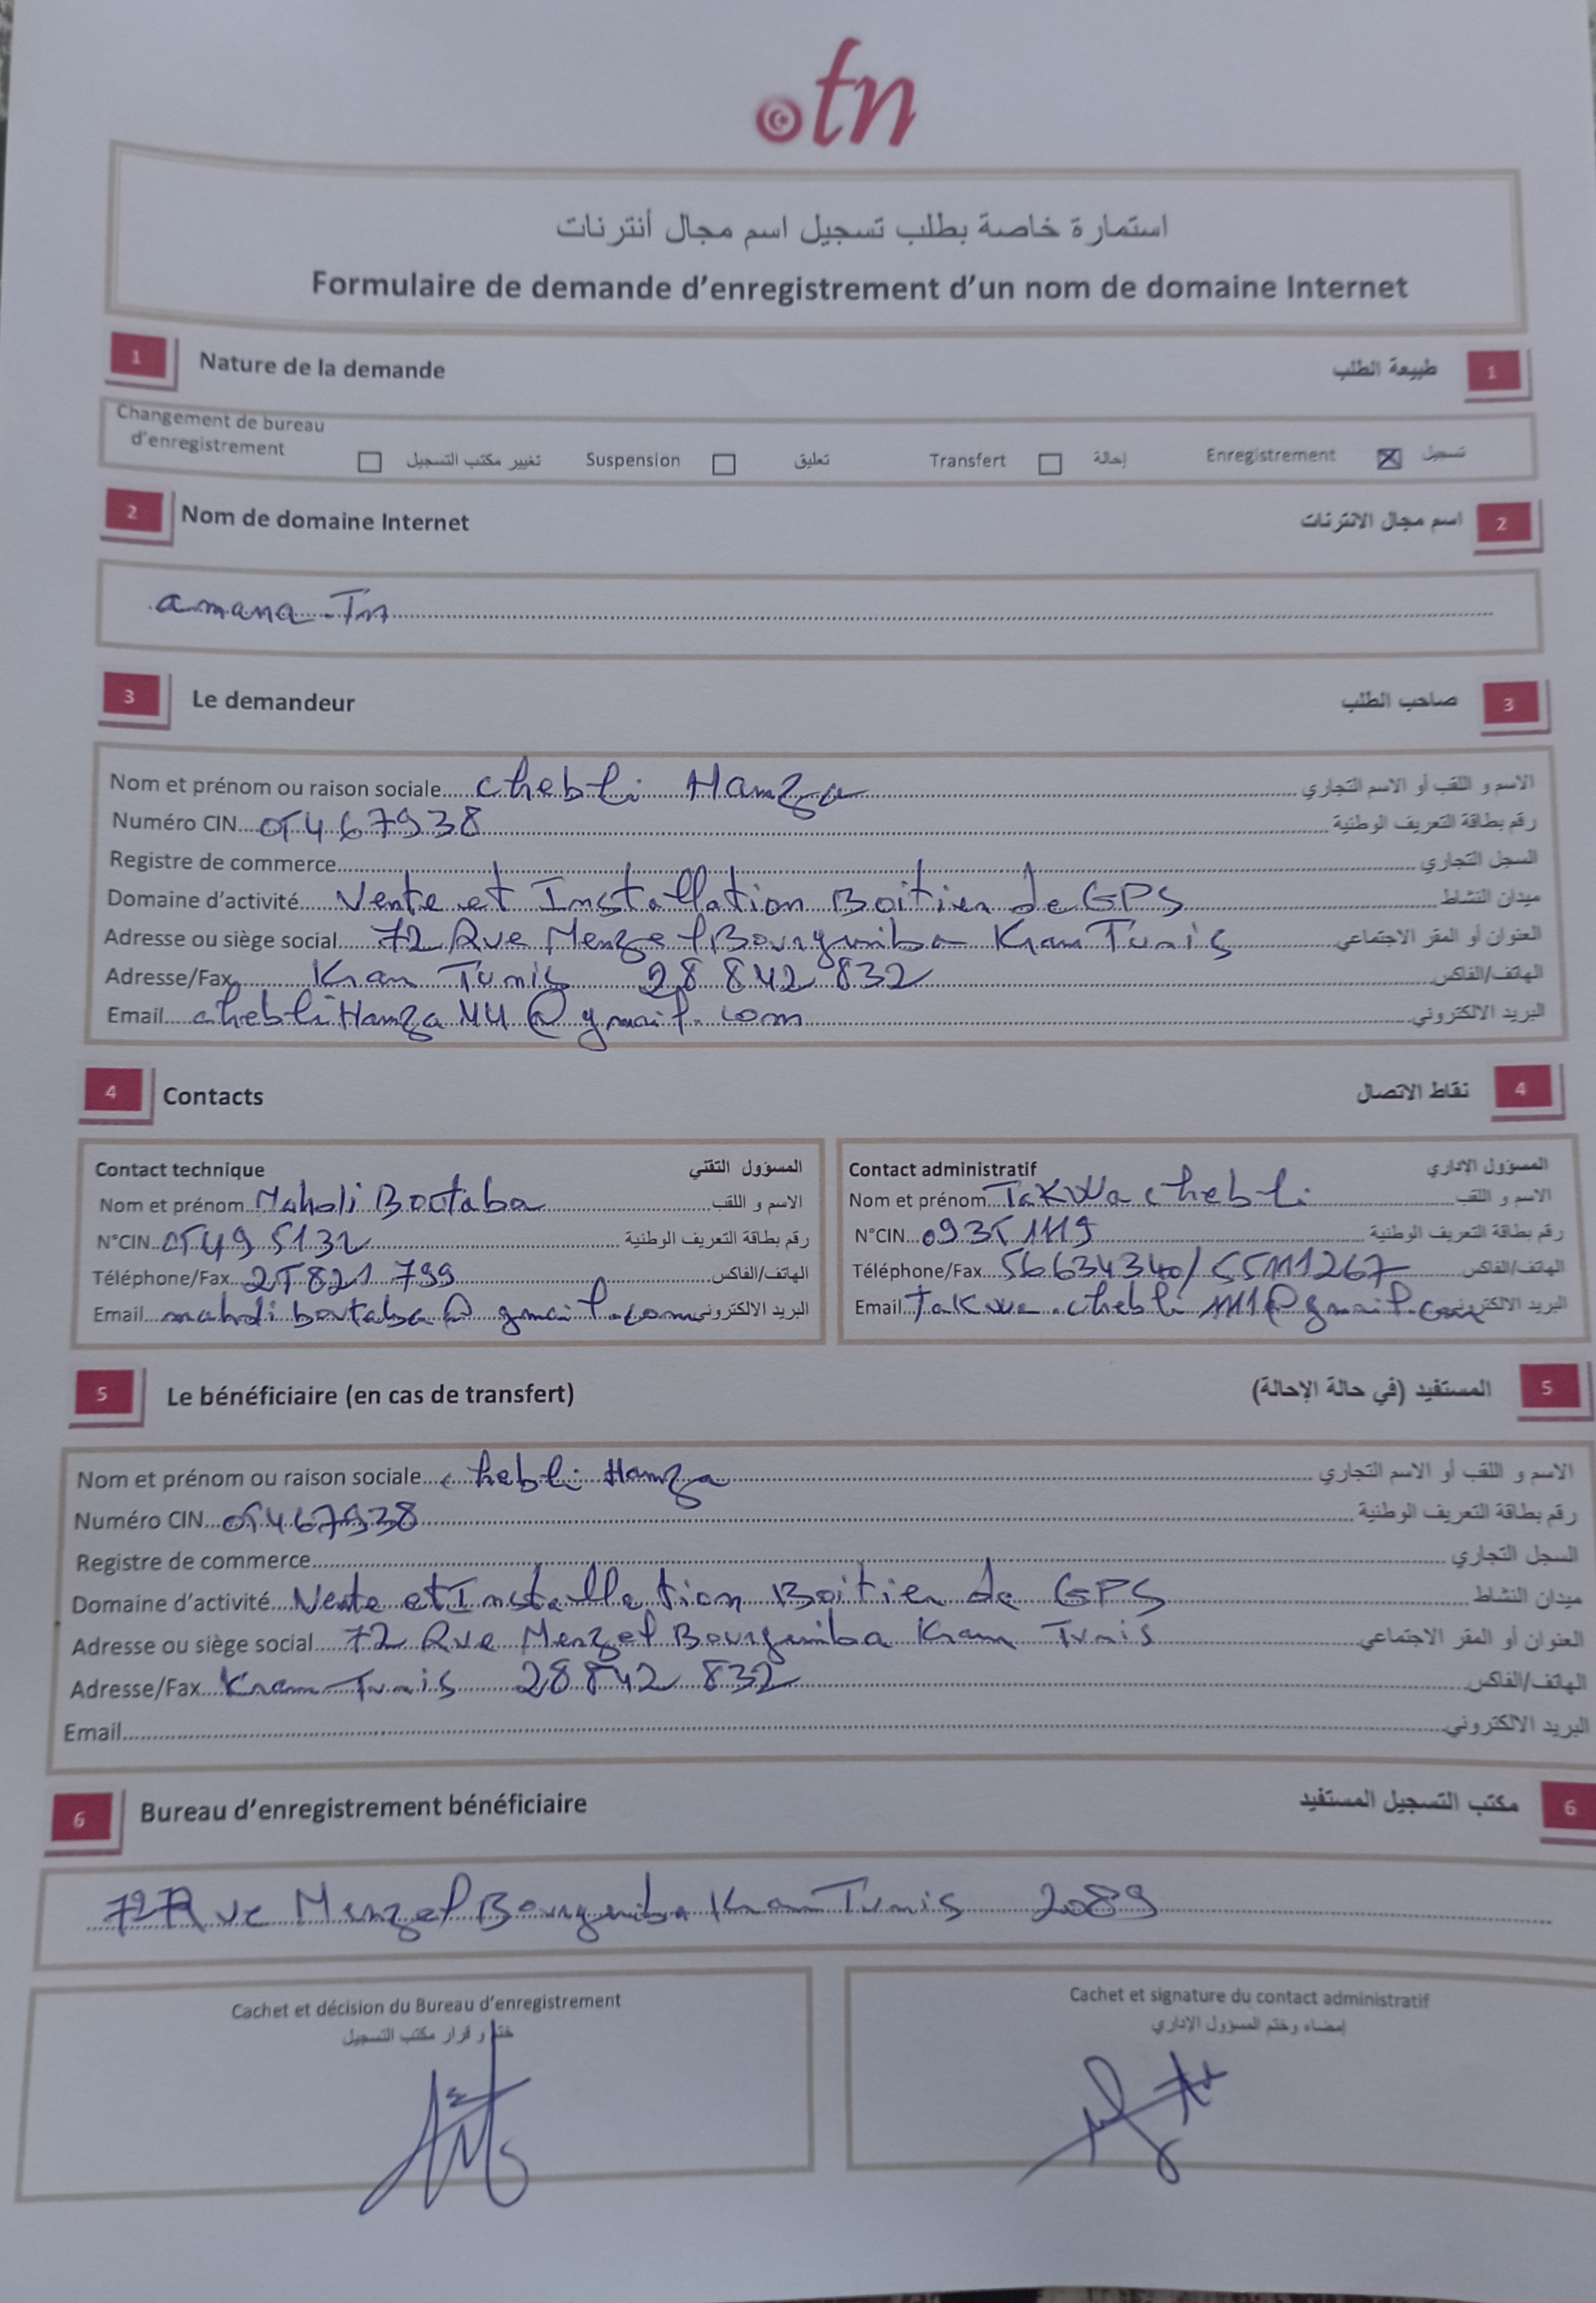 .tn
استمارة خاصة بطلب تسجيل اسم مجال أنترنات
Formulaire de demande d'enregistrement d'un nom de domaine Internet
1 Nature de la demande طبيعة الطلب 1
Changement de bureau d'enregistrement ☐ تغيير مكتب التسجيل Suspension ☐ تعليق Transfert ☐ إحالة Enregistrement ☒ تسجيل
2 Nom de domaine Internet اسم مجال الانترنات 2
amana.Tn
3 Le demandeur صاحب الطلب 3
Nom et prénom ou raison sociale chebli Hamza الاسم و اللقب أو الاسم التجاري
Numéro CIN 05467938 رقم بطاقة التعريف الوطنية
Registre de commerce السجل التجاري
Domaine d'activité Vente et Installation Boitier de GPS ميدان النشاط
Adresse ou siège social 72 Rue Menzel Bourguiba Kram Tunis العنوان أو المقر الاجتماعي
Adresse/Fax Kram Tunis 28 842 832 الهاتف/الفاكس
Email chebliHamza44@gmail.com البريد الالكتروني
4 Contacts نقاط الاتصال 4
Contact technique المسؤول التقني
Nom et prénom Mahdi Boutaba الاسم و اللقب
N°CIN 05495132 رقم بطاقة التعريف الوطنية
Téléphone/Fax 25821 799 الهاتف/الفاكس
Email mahdiboutaba@gmail.com البريد الالكتروني
Contact administratif المسؤول الإداري
Nom et prénom Takwa chebli الاسم و اللقب
N°CIN 09351119 رقم بطاقة التعريف الوطنية
Téléphone/Fax 56634340/55111267 الهاتف/الفاكس
Email Takwa.chebli1111@gmail.com البريد الالكتروني
5 Le bénéficiaire (en cas de transfert) المستفيد (في حالة الإحالة) 5
Nom et prénom ou raison sociale chebli Hamza الاسم و اللقب أو الاسم التجاري
Numéro CIN 05467938 رقم بطاقة التعريف الوطنية
Registre de commerce السجل التجاري
Domaine d'activité Vente et Installation Boitier de GPS ميدان النشاط
Adresse ou siège social 72 Rue Menzel Bourguiba Kram Tunis العنوان أو المقر الاجتماعي
Adresse/Fax Kram Tunis 28842 832 الهاتف/الفاكس
Email البريد الالكتروني
6 Bureau d'enregistrement bénéficiaire مكتب التسجيل المستفيد 6
72 Rue Menzel Bourguiba Kram Tunis 2089
Cachet et décision du Bureau d'enregistrement
ختم و قرار مكتب التسجيل
Cachet et signature du contact administratif
إمضاء وختم المسؤول الإداري